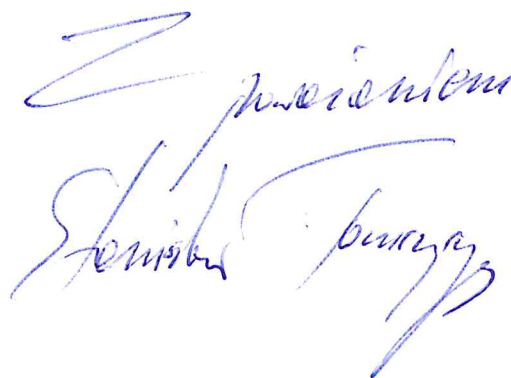 Z poważaniem
Stanisław